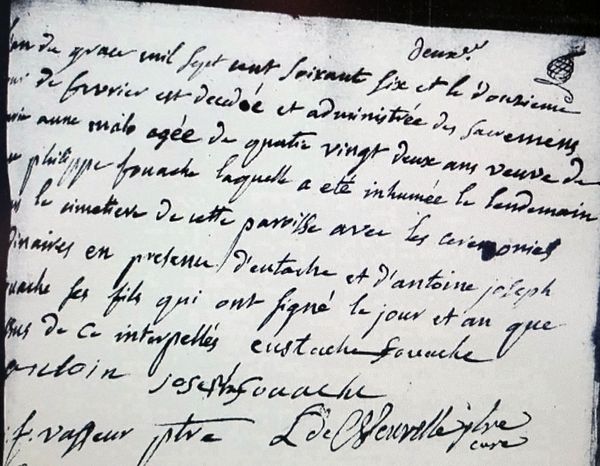 deuxe
lan de grace mil sept cent soixant six et le douzieme
jour de fevrier est decedée et administrée des sacremens
marie anne malo agée de quatre vingt deux ans veuve de
philippe fouache laquelle a eté inhumée le lendemain
le cimetiere de cette paroisse avec les ceremonies
dinaires en presence d'eutache et d'antoine joseph
ouache ses fils qui ont signé le jour et an que
sus de ce interpellés eustache fouache
joseph fouache
f. vasseur ptre L de ptre
curé